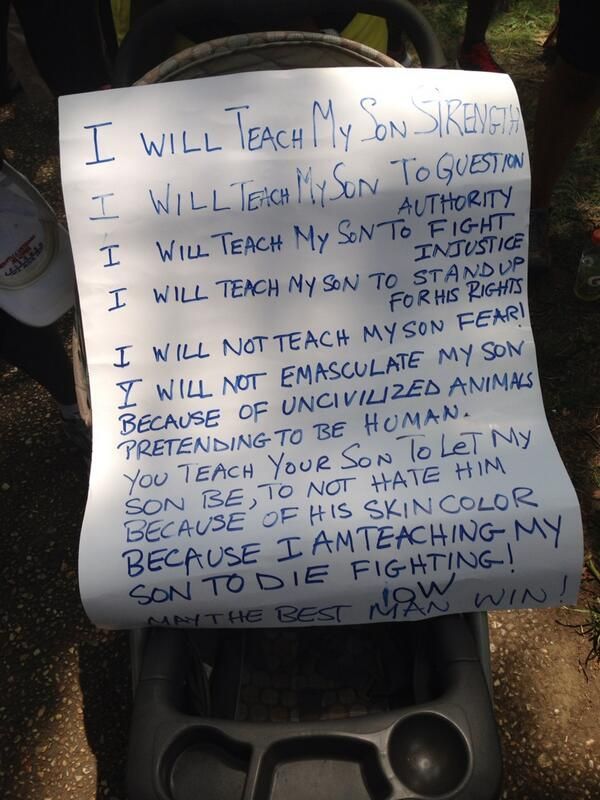 I WILL TEACH MY SON STRENGTH
I WILL TEACH MY SON TO QUESTION
AUTHORITY
I WILL TEACH MY SON TO FIGHT
INJUSTICE
I WILL TEACH MY SON TO STAND UP
FOR HIS RIGHTS
I WILL NOT TEACH MY SON FEAR!
I WILL NOT EMASCULATE MY SON
BECAUSE OF UNCIVILIZED ANIMALS
PRETENDING TO BE HUMAN.
YOU TEACH YOUR SON TO LET MY
SON BE, TO NOT HATE HIM
BECAUSE OF HIS SKIN COLOR
BECAUSE I AM TEACHING MY
SON TO DIE FIGHTING!
MAY THE BEST MAN WIN!